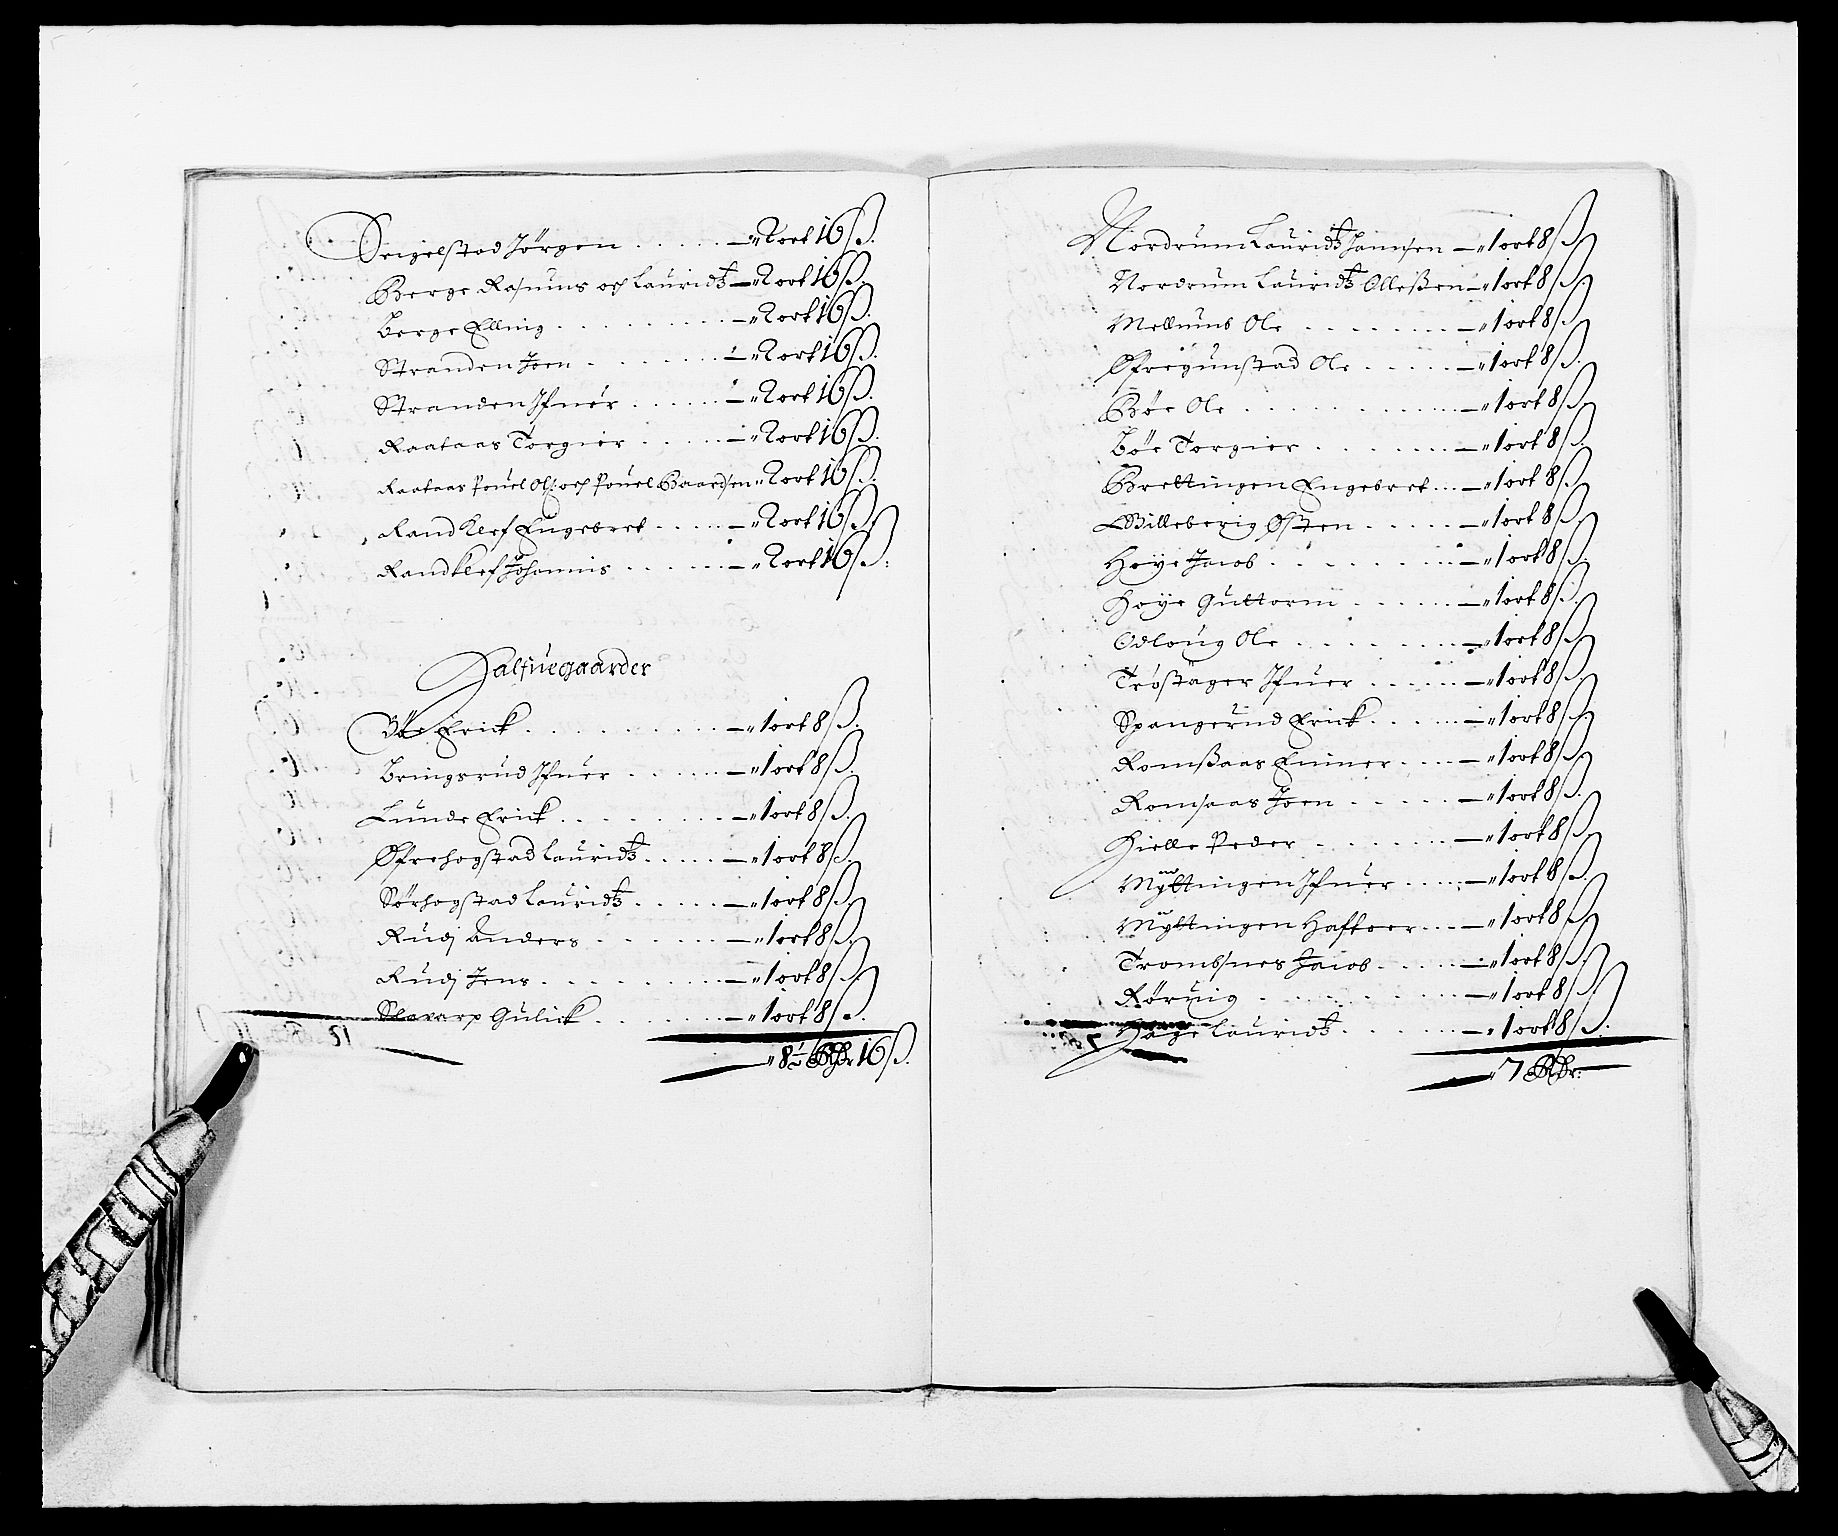 Seigelstad Jörgen . . . . . — " 2 ort 16 ß.
Berge Rasmus och Lauridtz — " 2 ort 16 ß.
Berge Elling . . . . . . . . . — " 2 ort 16 ß.
Stranden Joen . . . . . . . — " 2 ort 16 ß.
Stranden Ifuer . . . . . . — " 2 ort 16 ß.
Raataas Torgier . . . . . — " 2 ort 16 ß.
Raataas Pouel Ols: och Pouel Baardsen " 2 ort 16 ß.
Randklef Engebret . . . . . — " 2 ort 16 ß.
Randklef Johannis . . . . . . — " 2 ort 16 ß:
Halfuegaarder
Böe Erick . . . . . . . . . — " 1 ort 8 ß.
Bringsrud Ifuer . . . . . . — " 1 ort 8 ß.
Lunde Erick . . . . . . . . — " 1 ort 8 ß.
Øfrehogstad Lauridtz . . . . . — " 1 ort 8 ß.
Sørhogstad Lauridtz . . . . . — " 1 ort 8 ß.
Rudj Anders . . . . . . . — " 1 ort 8 ß.
Rudj Jens . . . . . . . . . — " 1 ort 8 ß.
Gulick . . . . . . . — " 1 ort 8 ß.
" 8½ Rdr 16 ß.
Nordrum Lauridtz Jannsen — " 1 ort 8 ß.
Nordrum Lauridtz Olleßen — " 1 ort 8 ß.
Mellums Ole . . . . . . . . — " 1 ort 8 ß.
Øfregunstad Ole . . . . . — " 1 ort 8 ß.
Böe Ole . . . . . . . . . . . — " 1 ort 8 ß.
Böe Torgier . . . . . . . — " 1 ort 8 ß.
Brettingen Engebret . . . — " 1 ort 8 ß.
Billeberig Østen . . . . . . — " 1 ort 8 ß.
Høye Jacob . . . . . . . . . — " 1 ort 8 ß.
Høye Guttorm . . . . . . — " 1 ort 8 ß.
Odloug Ole . . . . . . . . — " 1 ort 8 ß.
Trøstager Ifuer . . . . . . — " 1 ort 8 ß.
Spangerud Erick . . . . . — " 1 ort 8 ß.
Romßaas Einner . . . . — " 1 ort 8 ß.
Romsaas Joen . . . . . . — " 1 ort 8 ß.
Hielle Peder . . . . . . . — " 1 ort 8 ß.
Myttingen Ifuer . . . . . — " 1 ort 8 ß.
Myttingen Haftoer . . . — " 1 ort 8 ß.
Trombsnes Jacob . . . . . — " 1 ort 8 ß.
Røruig . . . . . . . . . . — " 1 ort 8 ß.
Hage Lauridtz . . . . . . — " 1 ort 8 ß.
" 7 Rdr: